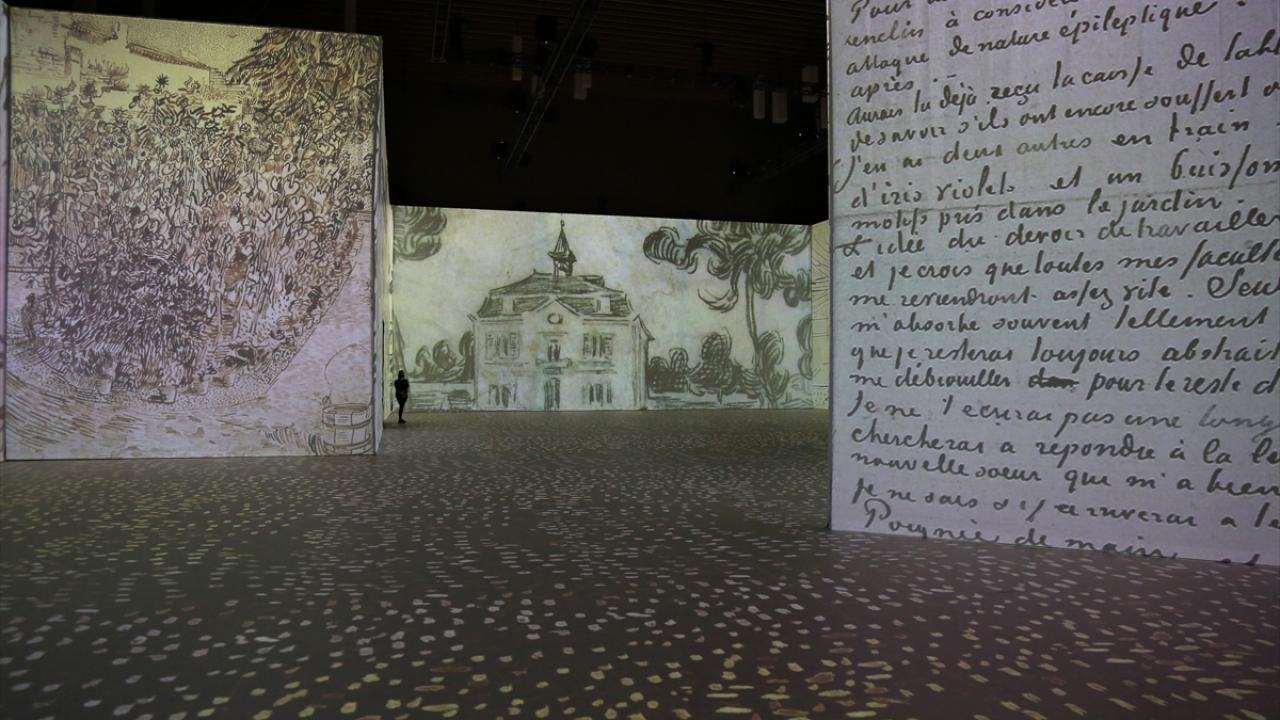 Pour
enclin à considér
attaque de nature épileptique.
après.
Aurais tu déjà reçu la caisse de
de savoir s'ils ont encore souffert
J'en ai deux autres en train
d'iris violets et un buisson
motifs pris dans le jardin.
L'idée du devoir de travailler
et je crois que toutes mes faculté
me reviendront assez vite. Seul
m'absorbe souvent tellement
que je resterai toujours abstrait
me débrouiller pour le reste d
Je ne t'ecrirai pas une long
chercherai a repondre à la le
nouvelle soeur qui m'a bien
je ne sais si j'y arriverai a
Poignée de main